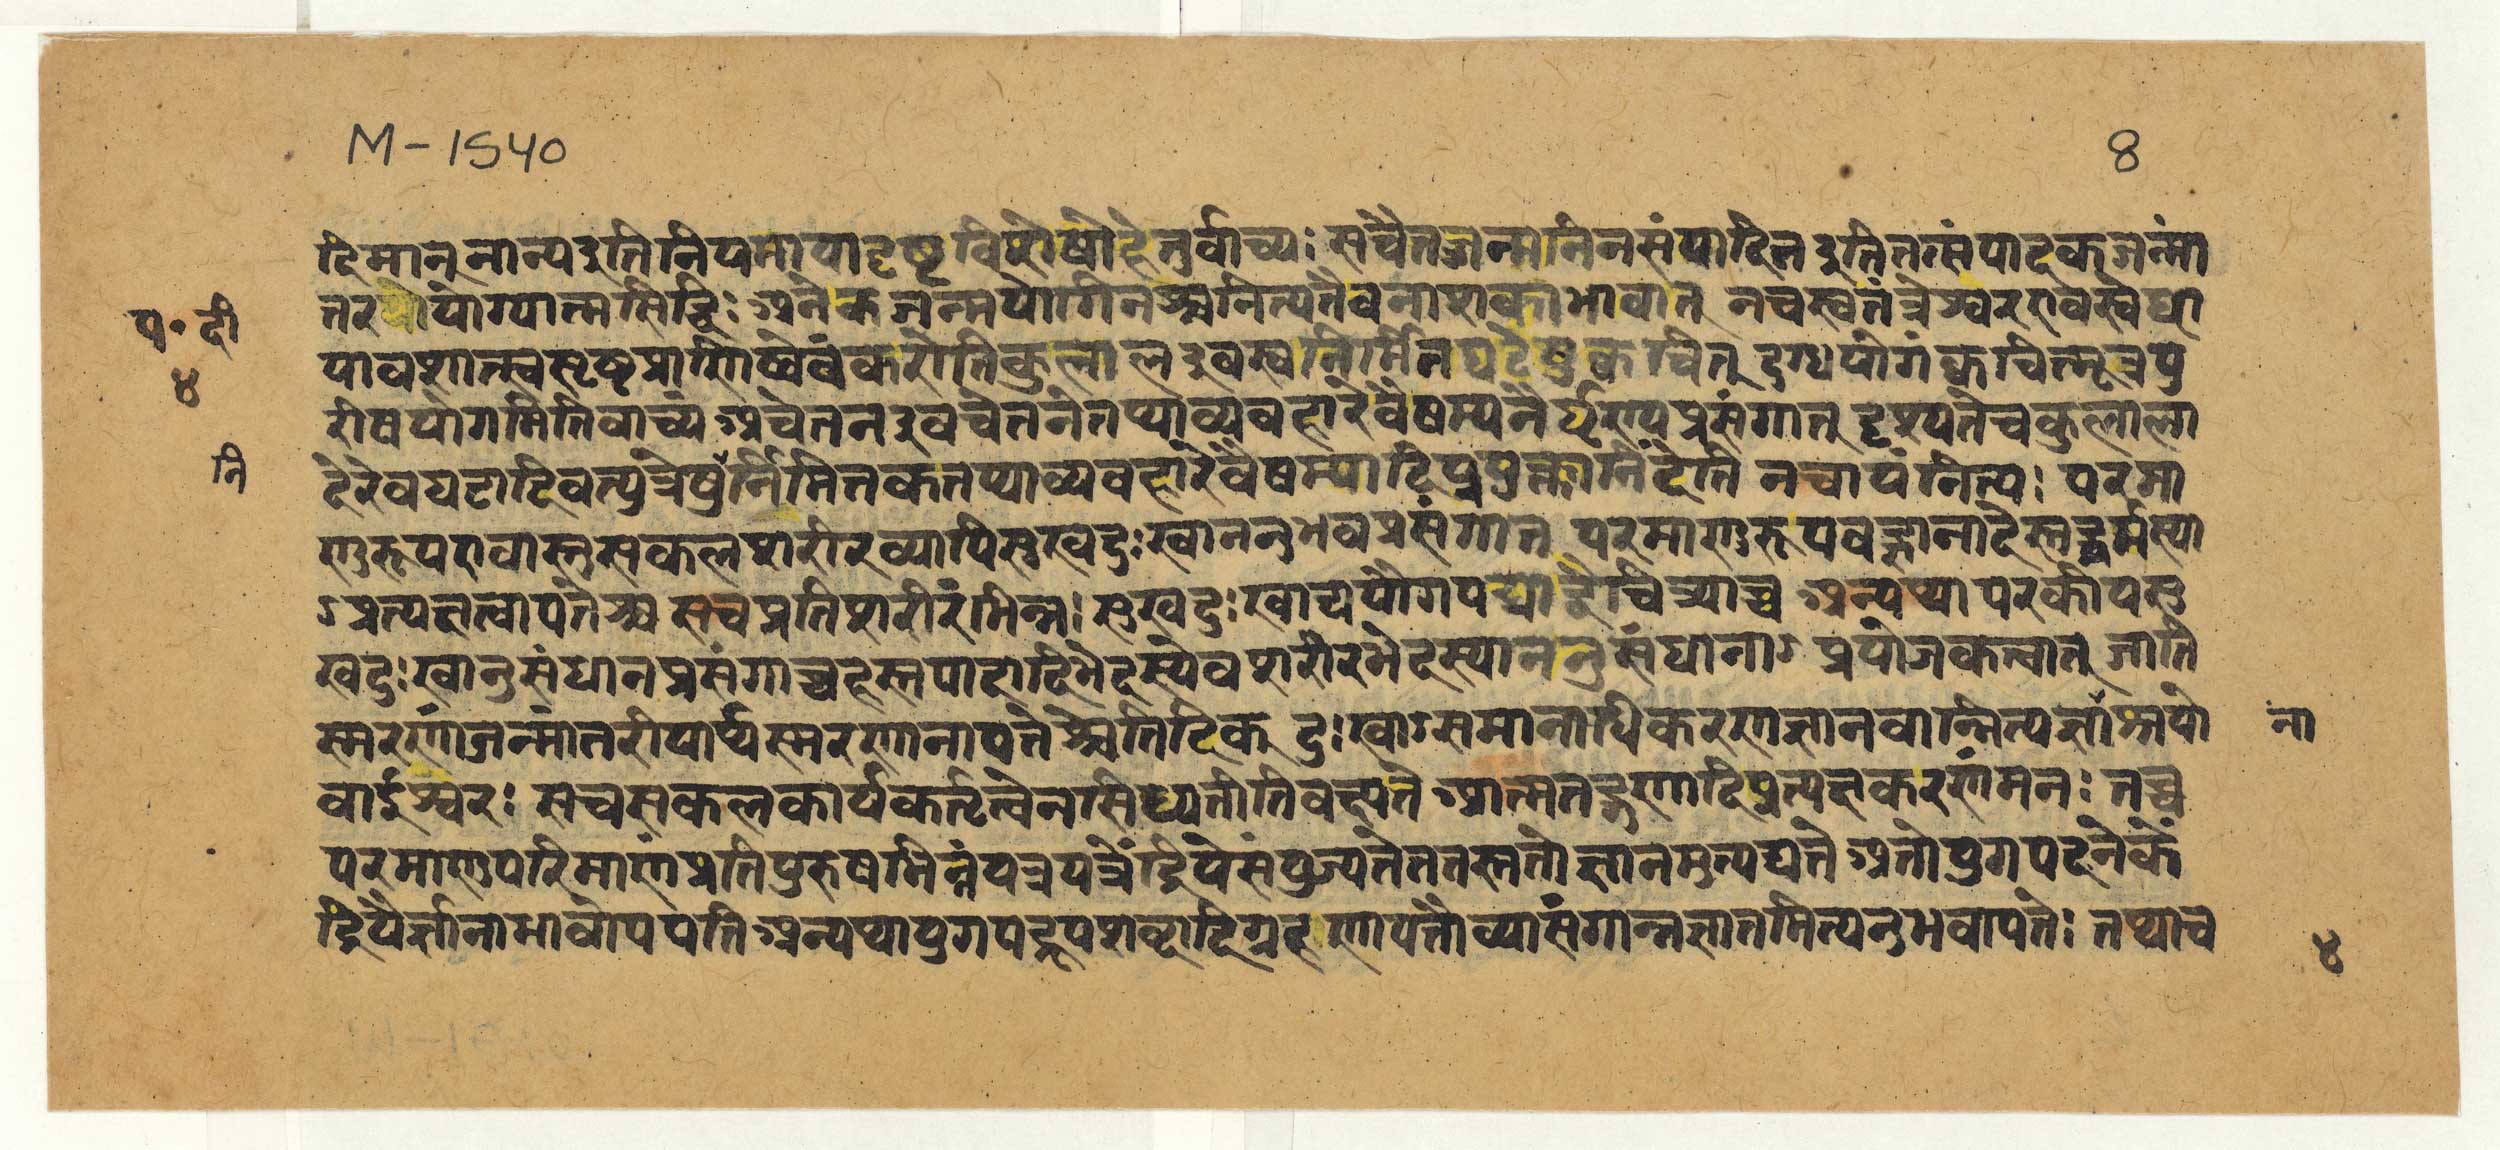 M-1540
8
दिमान् नान्य इति नियमायादृष्टविशेषो हेतुर्वाच्यः स चैतज्जन्मनि न संपादित इति तत्संपादकजन्मां
तर योग्यात्मसिद्धिः अनेकजन्मयोगिनश्च नित्यतैव नाशकाभावात् न च स्वतंत्रेश्वर एव स्वेच्छा
प॰ दी
यावशात्स्वसृष्टप्राणिष्वेवं करोति कुलाल इव स्वनिर्मितघटेषु क्वचित् दुग्धयोगं क्वचिन्मूत्रपु
४
रीषयोगमिति वाच्यं अचेतन इव चेतने तथा व्यवहारे वैषम्यनैर्घृण्यप्रसंगात् दृश्यते च कुलाला
ति
देरेव घटादिवत्पुत्रेषु र्निमित्तकतथाव्यवहारे वैषम्यादिप्रयुक्ता निंदेति न चायं नित्यः परमा
णुरूप एवास्तु सकलशरीरव्यापिसुखदुःखाननुभवप्रसंगात् परमाणुरूपवज्ज्ञानादेस्तद्धर्मस्या
ऽप्रत्यक्षत्वापत्तेश्च स च प्रतिशरीरं भिन्नः सुखदुःखाद्ययौगपद्याद्वैचित्र्याच्च अन्यथा परकीयसु
खदुःखानुसंधानप्रसंगाच्च हस्तपादादिभेदस्येव शरीरभेदस्याननुसंधानाऽप्रयोजकत्वात् जाति
स्मरणां जन्मांतरीयार्थस्मरणानापत्तेश्चेति दिक् दुःखाऽसमानाधिकरणज्ञानवान्नित्यज्ञाश्रयो
ना
वा ईश्वरः स च सकलकार्यकर्तृत्वेन सिध्यतीति वक्ष्यते आत्मतद्गुणादिप्रत्यक्षकरणं मनः तच्च
परमाणुपरिमाणं प्रतिपुरुषभिन्नं यत्र यत्रेंद्रिये संयुज्यते ततस्ततो ज्ञानमुत्पद्यते अतो युगपदनेकें
द्रियैर्ज्ञानाभावोपपत्ति अन्यथा युगपद्रूपशब्दादिग्रहणापत्तौ व्यासंगान्न ज्ञातमित्यनुभवापत्तेः तथा च
४